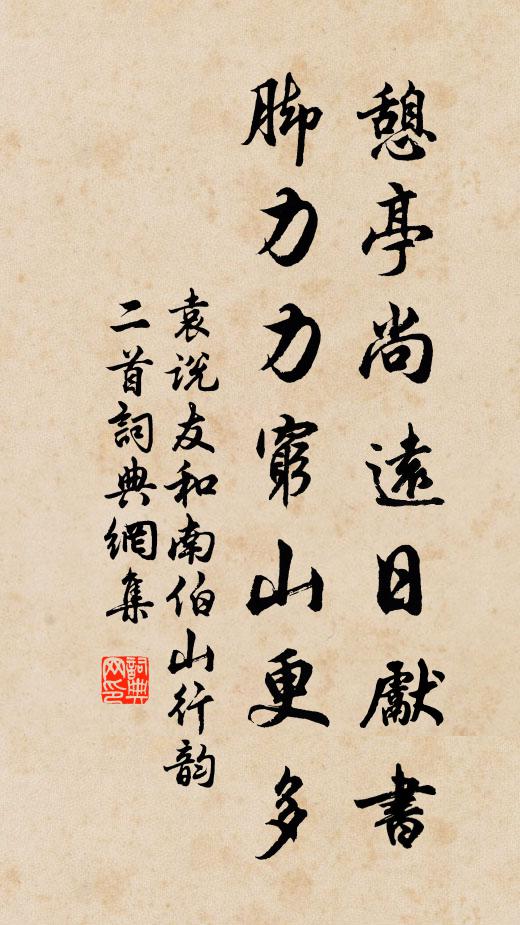 憩亭尚遠日獻書
脚力力窮山更多
袁説友和南伯山行韵
二首詞典網集
詞典網印